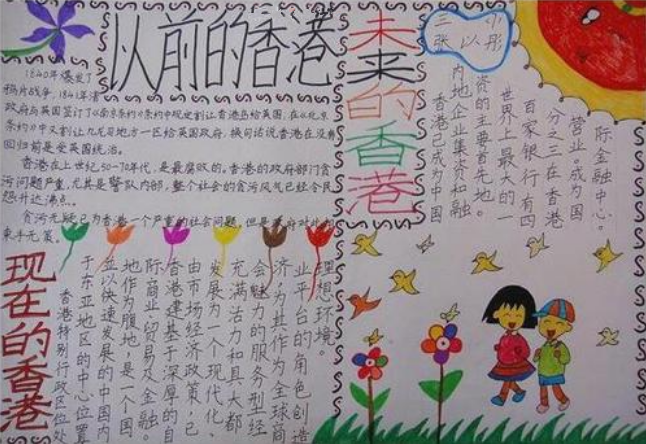 以前的香港
1840年爆发了
鸦片战争,1841年清
政府与英国签订了《南京条约》条约中规定割让香港岛给英国,在《北京
条约》中又割让九龙司地方一区给英国政府。换句话说香港在没有
回归前是受英国统治。
香港在上世纪50-70年代,是最腐败的。香港的政府部门贪
污问题严重,尤其是警队内部,整个社会的贪污风气已经令民
怨升达沸点。
贪污无疑已为香港一个严重的社会问题,但是政府对此
束手无策。
未来的香港
三 小
张以彤
香港已成为中国
内地企业集资和融
资的主要首先地。
世界上最大的一
百家银行有四
分之三在香港
营业。成为国
际金融中心。
现在的香港
香港特别行政区位处
于东亚地区的中心位置
并以快速发展的中国内
地作为腹地,是一个国
际商业贸易及金融。
香港建基于深厚的自
由市场经济政策,已
发展为一个现代化、
充满活力和具大都
会魅力的服务型经
济,为其作为全球商
业平台的角色创造
理想环境。